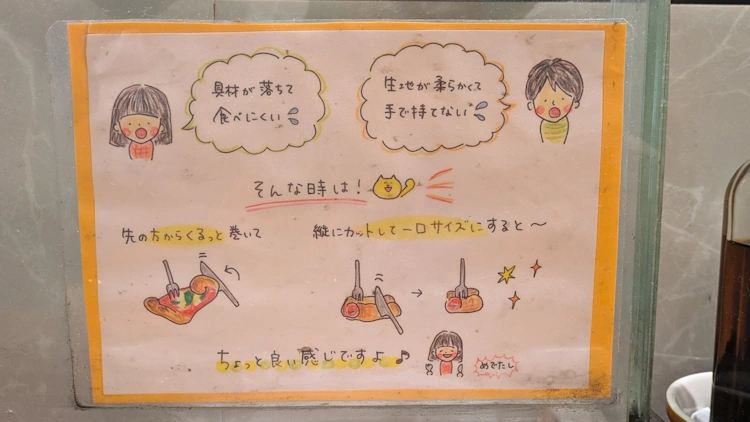 具材が落ちて
食べにくい
生地が柔らかくて
手で持てない
そんな時は!
先の方からくるっと巻いて
縦にカットして一口サイズにすると〜
ちょっと良い感じですよ♪
めでたし